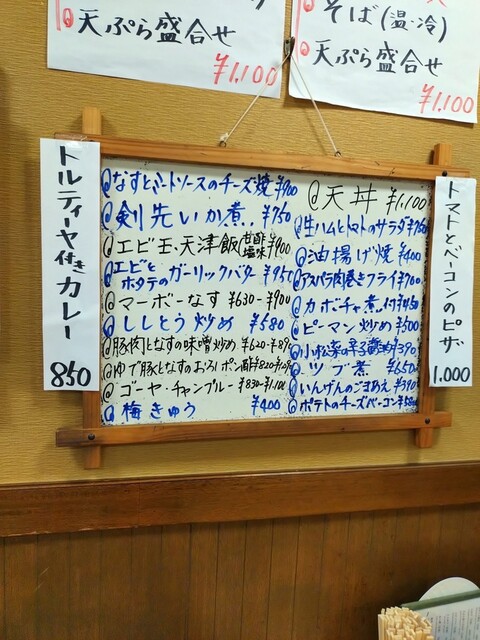 天ぷら盛合せ
¥1,100
そば(温・冷)
天ぷら盛合せ
¥1,100
トルティーヤ付きカレー
850
@なすとミートソースのチーズ焼 ¥900
@剣先いか煮 ¥750
@エビ玉天津飯 甘酢 塩味 ¥900
@エビとホタテのガーリックバター ¥950
@マーボーなす ¥630-¥900
@ししとう炒め ¥580
@豚肉となすの味噌炒め ¥620-¥890
@ゆで豚となすのおろしポン酢
@ゴーヤ・チャンプルー ¥830-¥1,100
@梅きゅう ¥400
@天丼 ¥1,100
@生ハムとトマトのサラダ
@油揚げ焼 ¥400
@アスパラ肉巻きフライ ¥700
@カボチャ煮付 ¥450
@ピーマン炒め ¥500
@小松菜の辛子醤油 ¥390
@ツブ煮 ¥650
@いんげんのごまあえ ¥390
@ポテトのチーズベーコン ¥580
トマトとベーコンのピザ
1.000